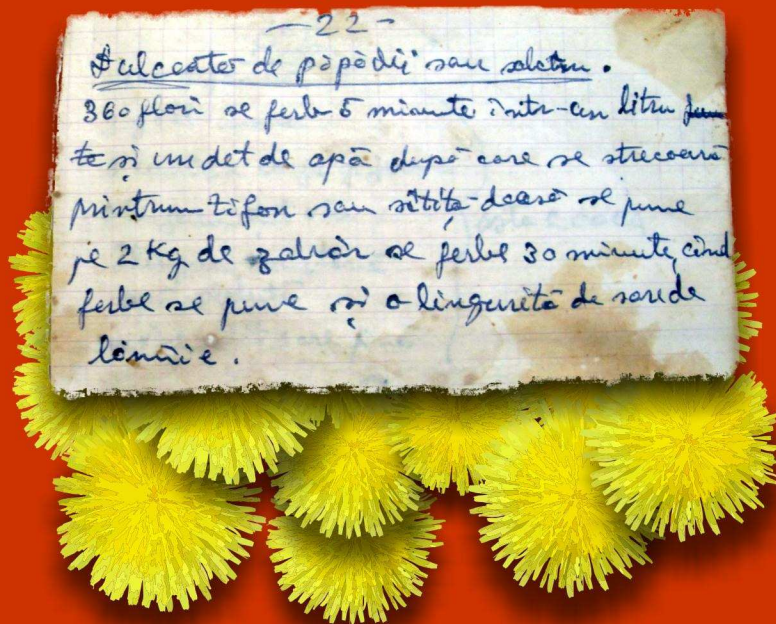 - 22 -
Dulceata de păpădii sau salcâm.
360 flori se ferb 5 minute într-un litru
te și un det de apă după care se strecoară
printrun tifon sau sitită deasă se pune
pe 2 Kg de zahăr se ferbe 30 minute, cînd
ferbe se pune și o linguriță de sare de
lămîie.